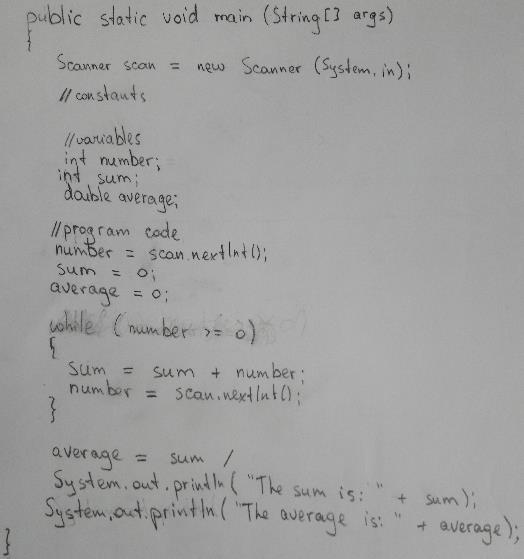 public static void main (String[] args)
{
Scanner scan = new Scanner (System.in);
//constants
//variables
int number;
int sum;
double average;
//program code
number = scan.nextInt();
sum = 0;
average = 0;
while (number >= 0)
{
sum = sum + number;
number = scan.nextInt();
}
average = sum /
System.out.println( "The sum is: " + sum);
System.out.println( "The average is: " + average);
}